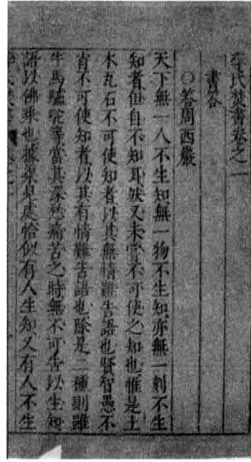 李氏焚書卷之一
書答
○答周西巖
天下無一人不生知無一物不生知亦無一刻不生
知者但自不知耳然又未嘗不可使之知也惟是土
木瓦石不可使知者以其無情難告語也賢智愚不
肖不可使知者以其有情難告語也除是二種則雖
牛馬驢駝等當其深愁痛苦之時無不可告以生知
語以佛乘也據渠見處恰似有人生知又有人不生